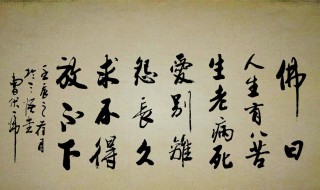 佛曰
人生有八苦
生老病死
愛別離
怨長久
求不得
放不下
壬辰之荷月